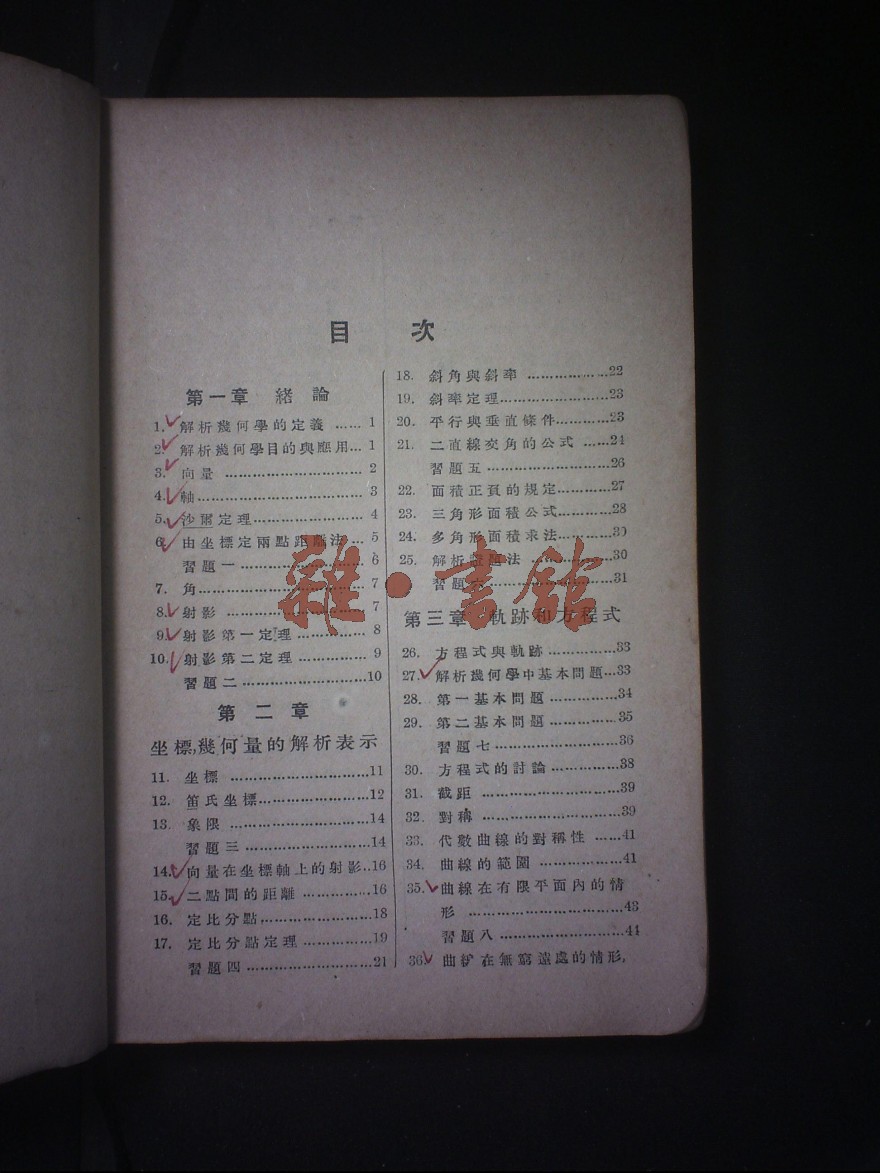 目 次
第一章 緒論
1. 解析幾何學的定義 …… 1
2. 解析幾何學目的與應用… 1
3. 向量 ………………………… 2
4. 軸……………………………… 3
5. 沙爾定理…………………… 4
6. 由坐標定兩點距離法… 5
習題一 …………………… 6
7. 角……………………………… 7
8. 射影 ………………………… 7
9. 射影第一定理 …………… 8
10. 射影第二定理 …………… 9
習題二 ……………………10
第二章
坐標,幾何量的解析表示
11. 坐標 …………………………11
12. 笛氏坐標……………………12
13. 象限 …………………………14
習題三 ……………………14
14. 向量在坐標軸上的射影..16
15. 二點間的距離 ……………16
16. 定比分點……………………18
17. 定比分點定理 ……………19
習題四 ……………………21
18. 斜角與斜率 ………………22
19. 斜率定理……………………23
20. 平行與垂直條件…………23
21. 二直線交角的公式 ……24
習題五 ……………………26
22. 面積正負的規定…………27
23. 三角形面積公式…………28
24. 多角形面積求法…………30
25. 解析證題法 ………………30
習題六 ……………………31
第三章 軌跡和方程式
26. 方程式與軌跡 ……………33
27. 解析幾何學中基本問題…33
28. 第一基本問題 ……………34
29. 第二基本問題 ……………35
習題七 ……………………36
30. 方程式的討論 ……………38
31. 截距 …………………………39
32. 對稱 …………………………39
33. 代數曲線的對稱性 ……41
34. 曲線的範圍 ………………41
35. 曲線在有限平面內的情
形 ……………………………43
習題八 ……………………44
36. 曲線在無窮遠處的情形,
雜·書館